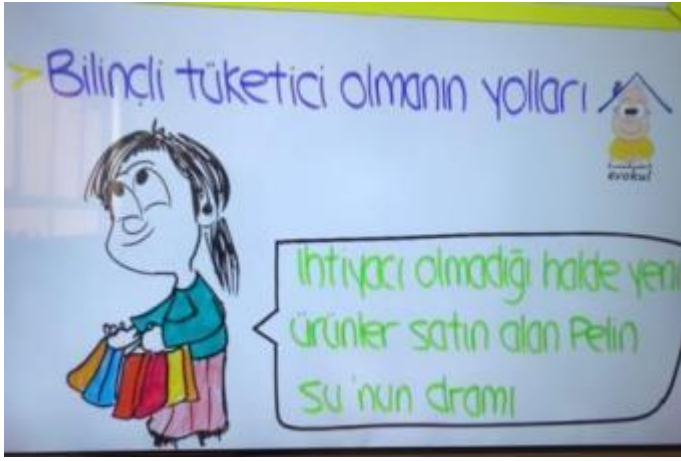 Bilinçli tüketici olmanın yolları
evokul
İhtiyacı olmadığı halde yeni
ürünler satın alan Pelin
Su'nun dramı